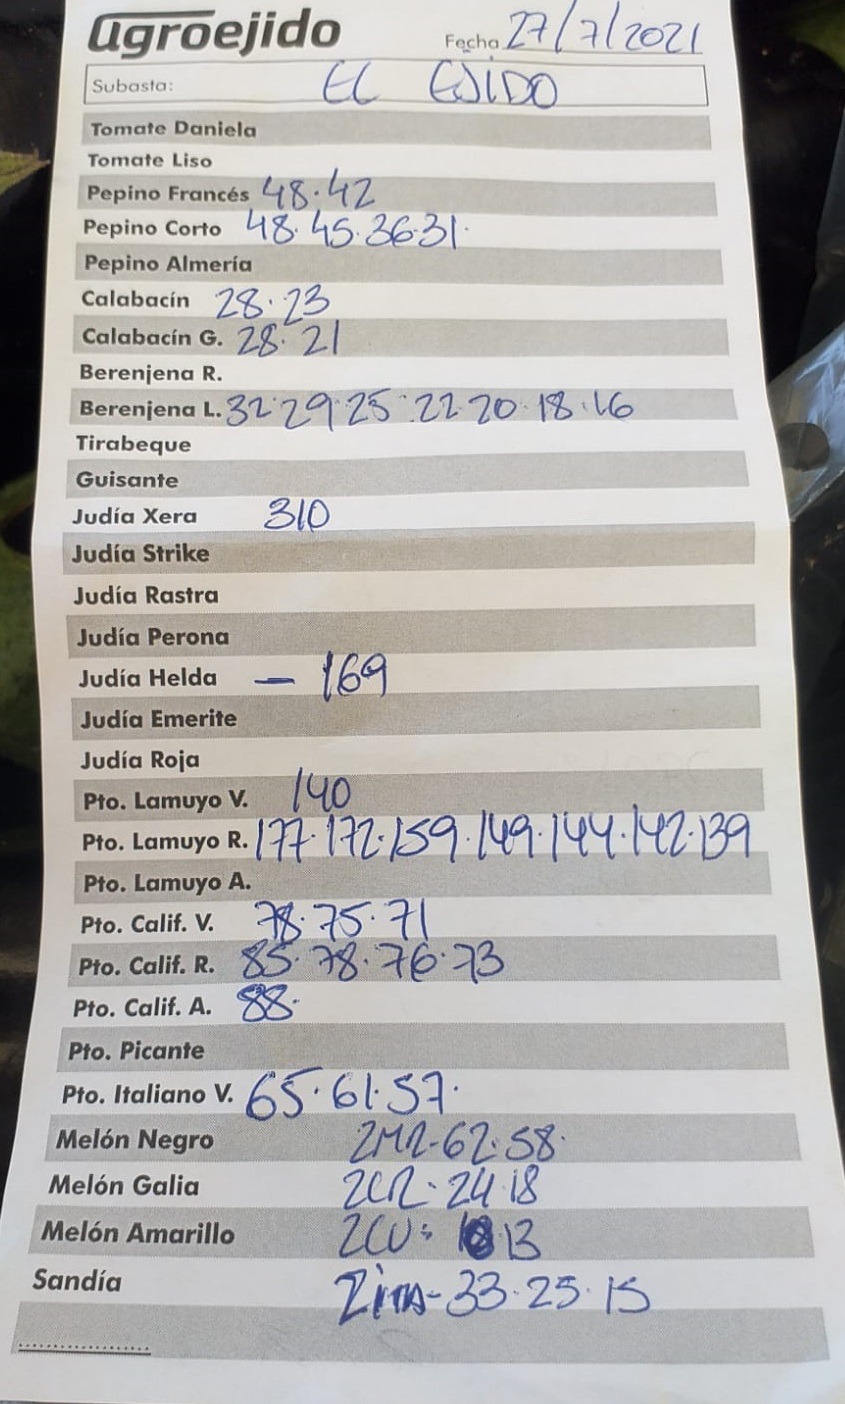 agroejido Fecha 27/7/2021
Subasta: EL EJIDO
Tomate Daniela
Tomate Liso
Pepino Francés 48.42
Pepino Corto 48.45.36.31.
Pepino Almería
Calabacín 28.23
Calabacín G. 28.21
Berenjena R.
Berenjena L. 32.29.25.22.20.18.16
Tirabeque
Guisante
Judía Xera 310
Judía Strike
Judía Rastra
Judía Perona
Judía Helda — 169
Judía Emerite
Judía Roja
Pto. Lamuyo V. 140
Pto. Lamuyo R. 177.172.159.149.144.142.139
Pto. Lamuyo A.
Pto. Calif. V. 78.75.71
Pto. Calif. R. 85.78.76.73
Pto. Calif. A. 88.
Pto. Picante
Pto. Italiano V. 65.61.57.
Melón Negro 62.58.
Melón Galia 24.18
Melón Amarillo 13
Sandía 33.25.15